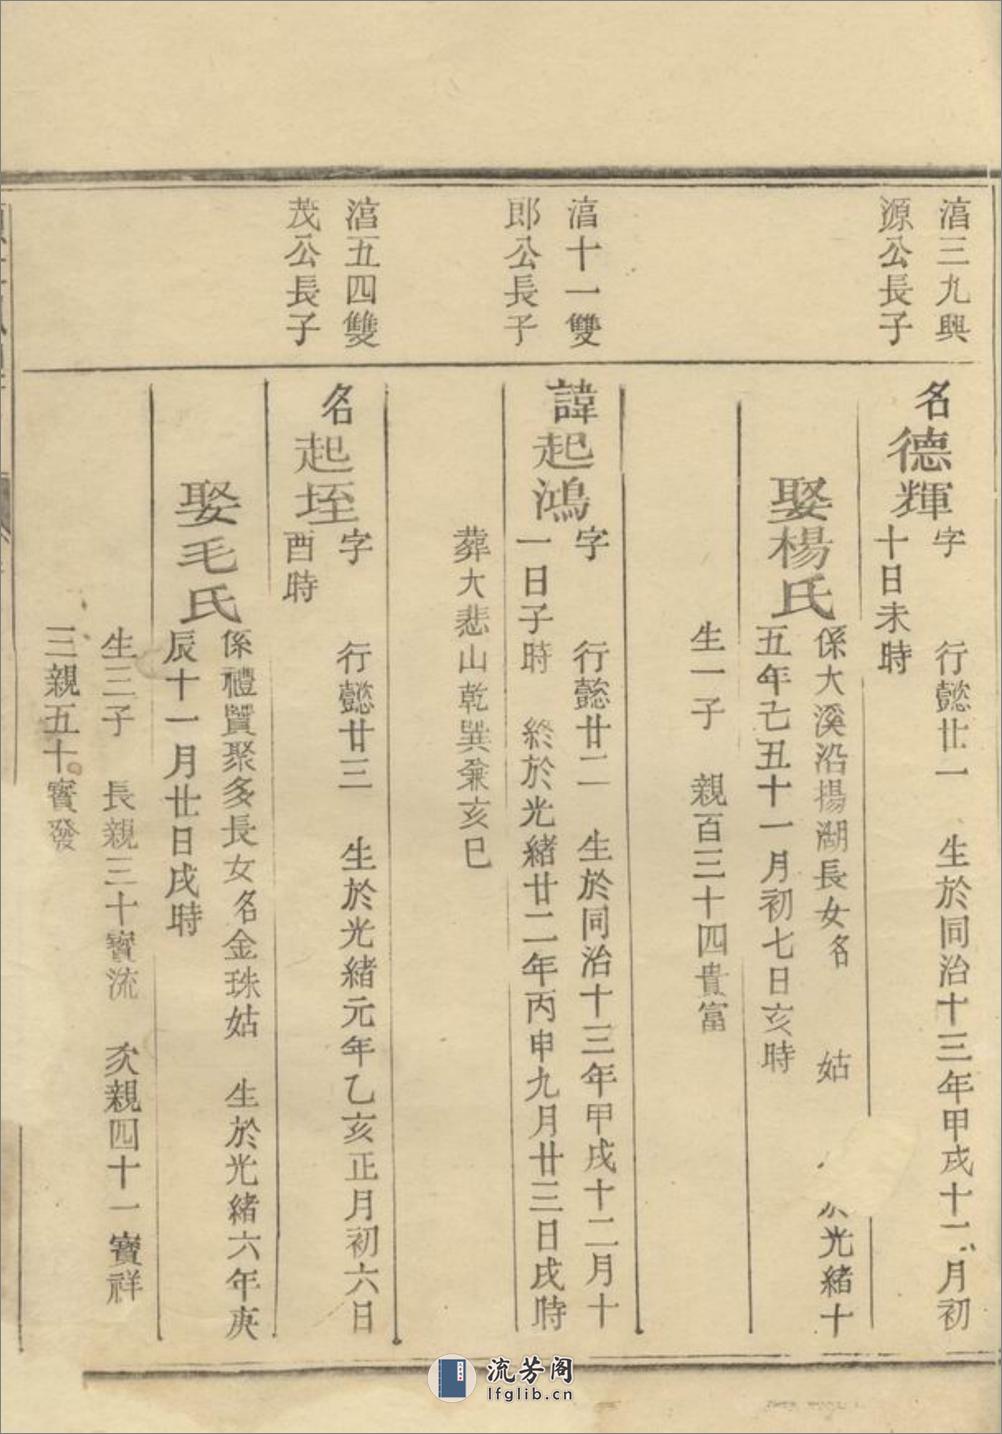 湻三九興
源公長子
名德輝
字 行懿廿一 生於同治十三年甲戌十一月初
十日未時
娶楊氏
係大溪沿揚湖長女名 姑 光緒十
五年己丑十一月初七日亥時
生一子 親百三十四貴富
湻十一雙
郎公長子
諱起鴻
字 行懿廿二 生於同治十三年甲戌十二月十
一日子時 終於光緒廿二年丙申九月廿三日戌時
葬大悲山乾巽兼亥巳
湻五四雙
茂公長子
名起垤
字 行懿廿三 生於光緒元年乙亥正月初六日
酉時
娶毛氏
係禮賢聚多長女名金珠姑 生於光緒六年庚
辰十一月廿日戌時
生三子 長親三十寳流 次親四十一寳祥
三親五十寳發
流芳阁
lfglib.cn